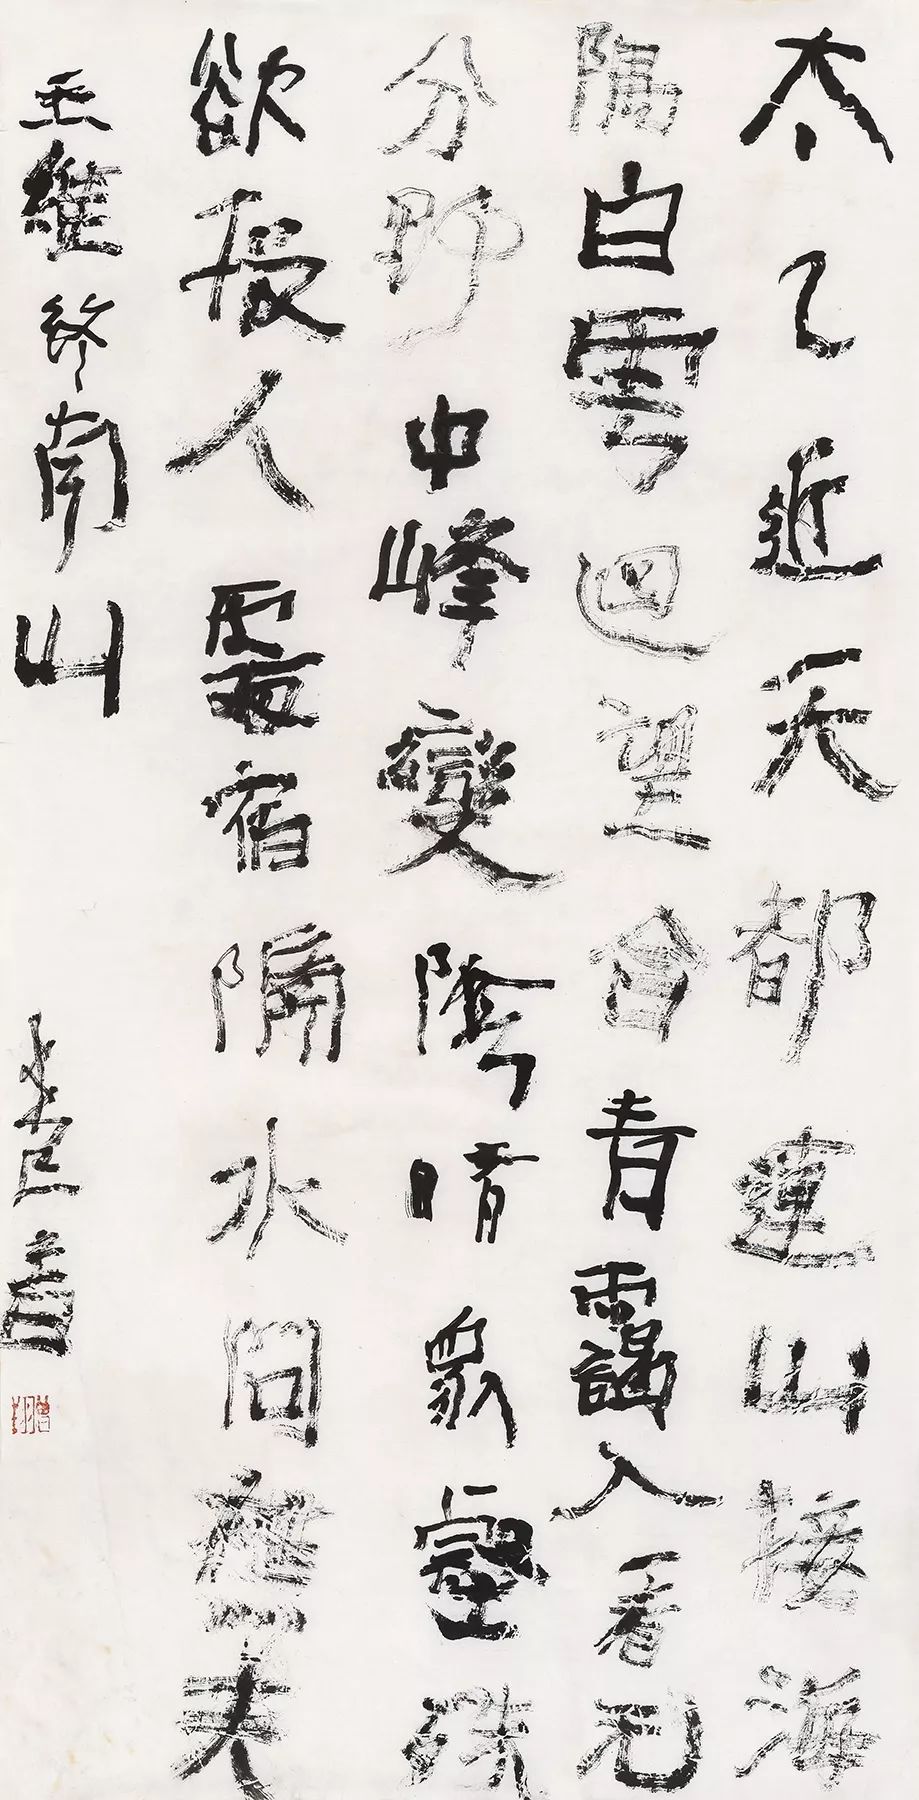 太乙近天都連山接海
隅白雲迴望會青靄入看无
分野中峰變陰晴眾壑殊
欲投人處宿隔水問樵夫
王維終南山
曾翔